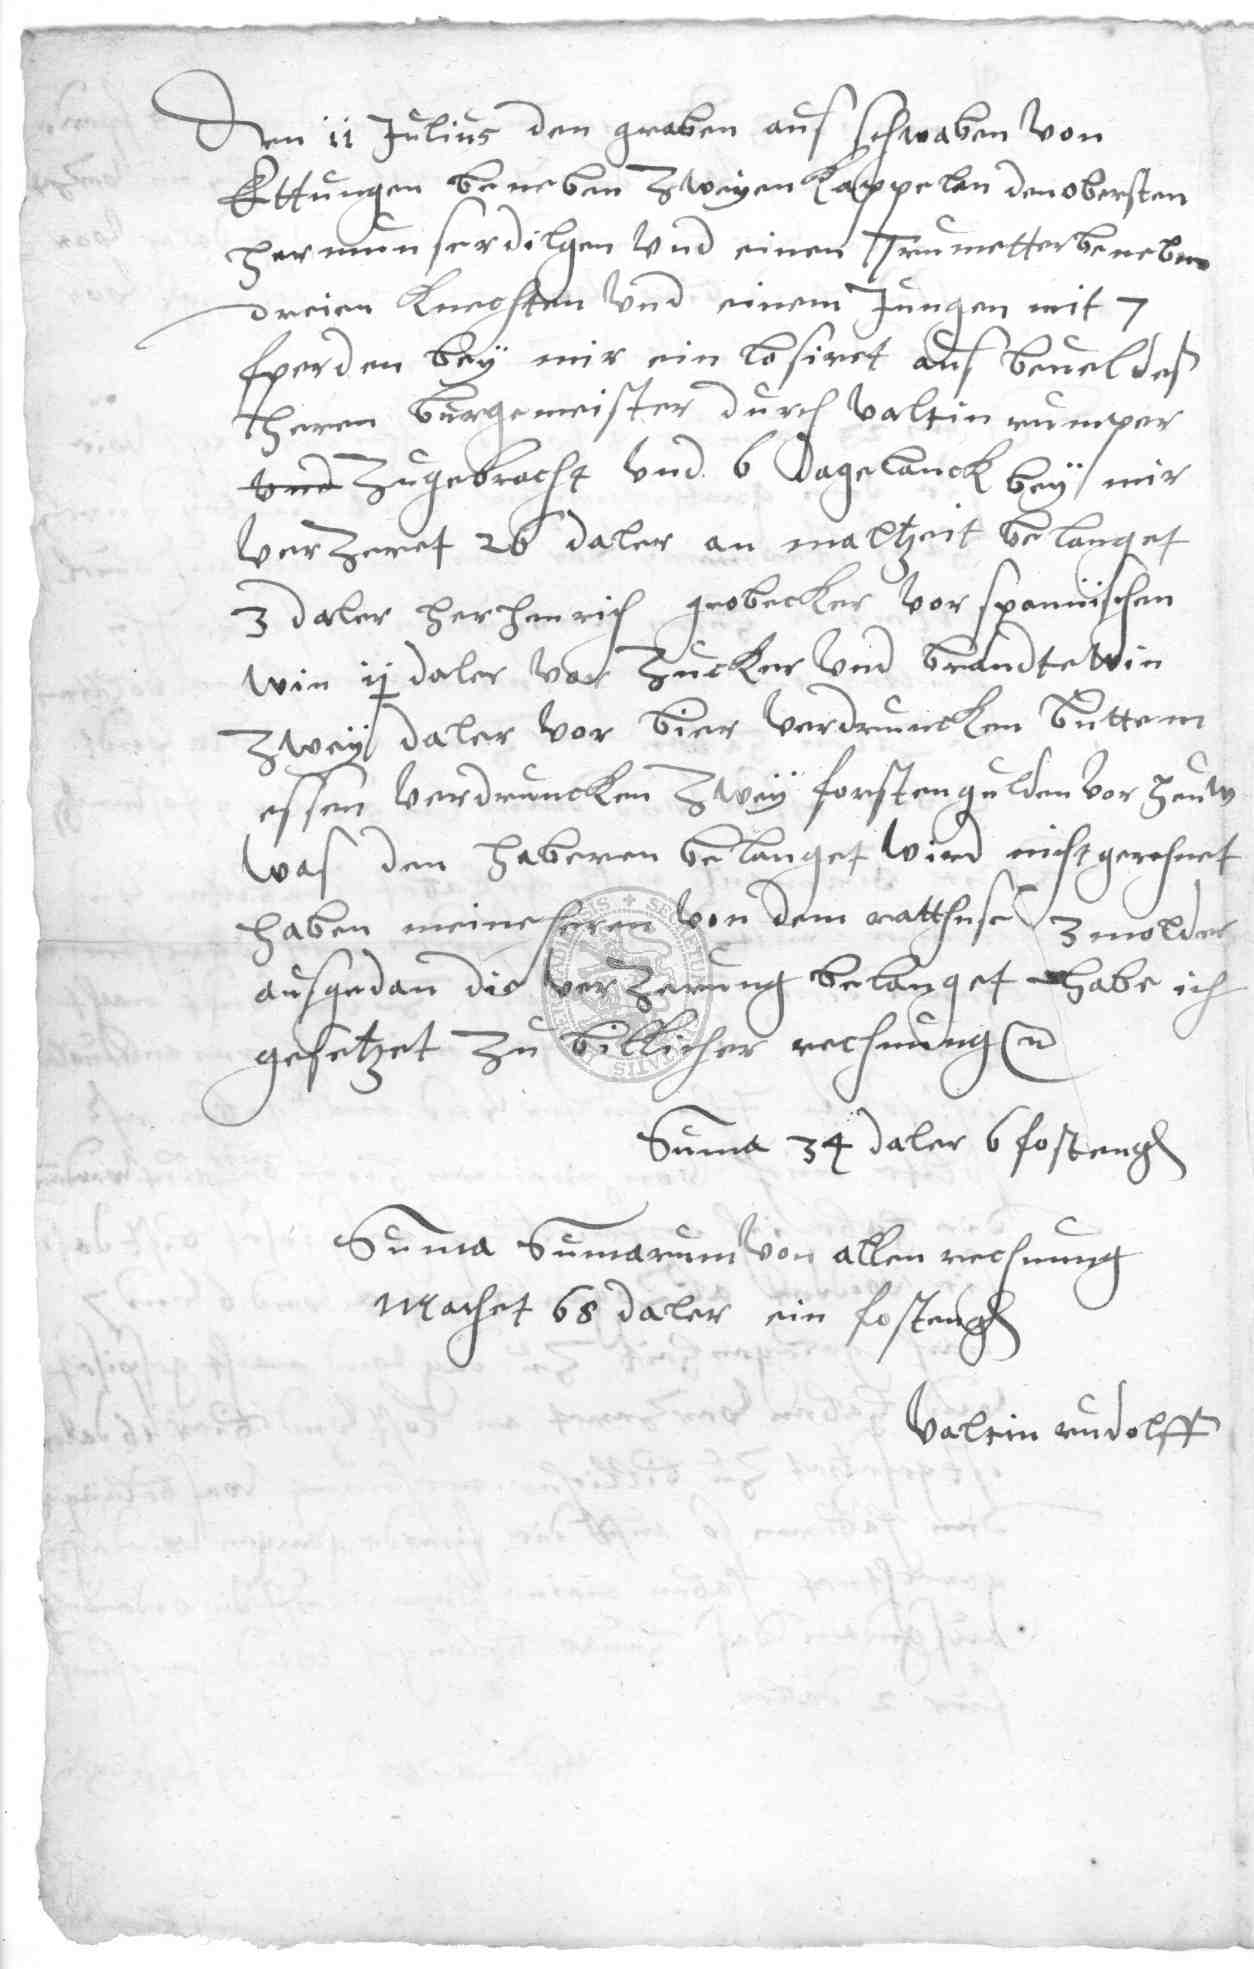 Den 11 Julius den graben aus schwaben von
Ettungen beneben Zweyen Kappelan den obersten
her mun ser dilgen vnd einen Trumetter beneben
dreien Knechten vnd einem Jungen mit 7
fperden bey mir ein losiret aus beuel des
heren burgemeister durch valtin rumper
vnd Zugebracht vnd 6 Dagelanck bey mir
ver Zeret 26 daler an maltzeit belanget
3 daler her henrich grobecker vor spannischen
win ij daler vor Zucker vnd brandtewin
Zwey daler vor bier verdruncken buttem
essen verdruncken Zwey forstengulden vor heuw
was den haberen belanget wird nicht gerechnet
haben meine heren von dem ratthuse 3 molder
ausgedan die ver Zerung belanget habe ich
gesetzet Zu billicher rechnung
Suma 34 daler 6 fosteng
Suma Sumarum von allen rechnung
Machet 68 daler ein fosteng
Valtin rudolff